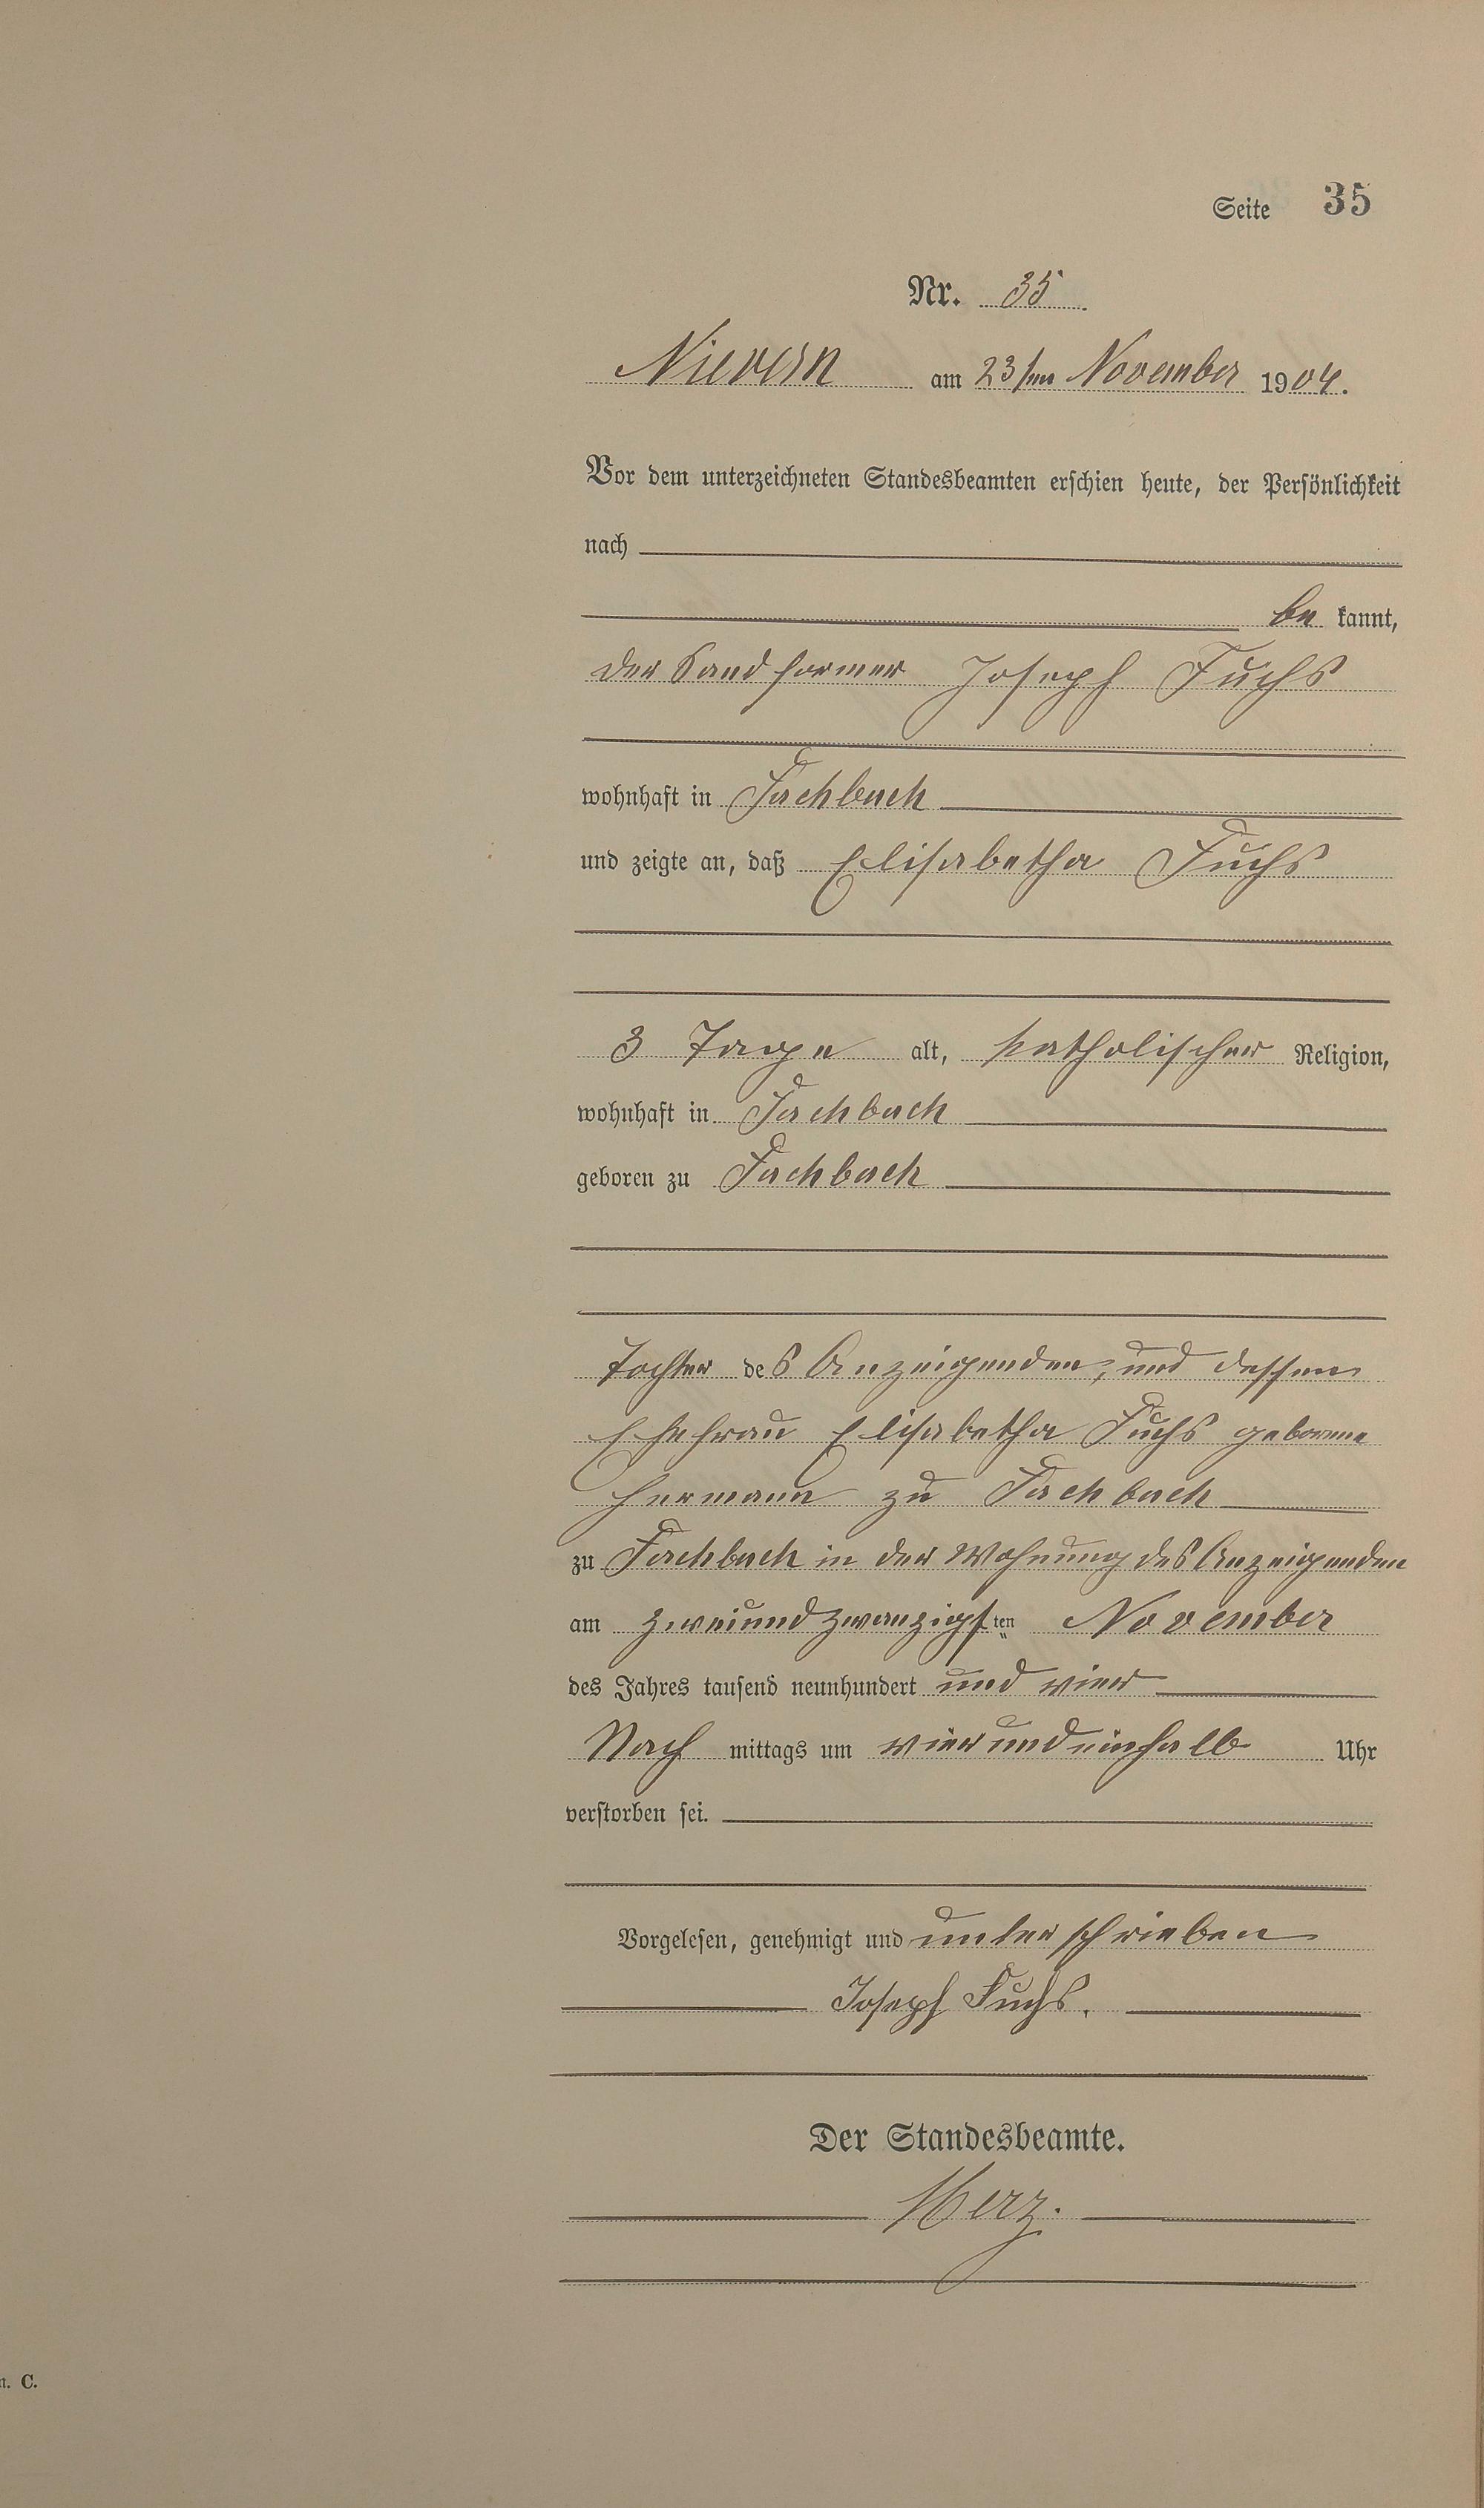 Seite 35
Nr. 35
Nievern am 23ten November 1904.
Vor dem unterzeichneten Standesbeamten erschien heute, der Persönlichkeit
nach
be kannt,
der Sandformer Joseph Fuchs
wohnhaft in Fachbach
und zeigte an, daß Elisabetha Fuchs
3 Tage alt, katholischer Religion,
wohnhaft in Fachbach
geboren zu Fachbach
Tochter des Anzeigenden, und dessen
Ehefrau Elisabetha Fuchs geborene
Hermann zu Fachbach
zu Fachbach in der Wohnung des Anzeigenden
am zweiundzwanzigsten November
des Jahres tausend neunhundert und vier
Nach mittags um vierundeinhalb Uhr
verstorben sei.
Vorgelesen, genehmigt und unterschrieben
Joseph Fuchs.
Der Standesbeamte.
Herz.
n. C.